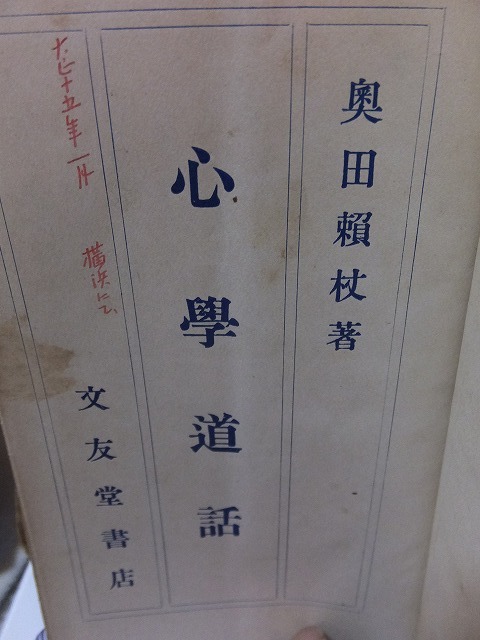 奥田賴杖著
心學道話
大正十五年一月
横浜にて
文友堂書店